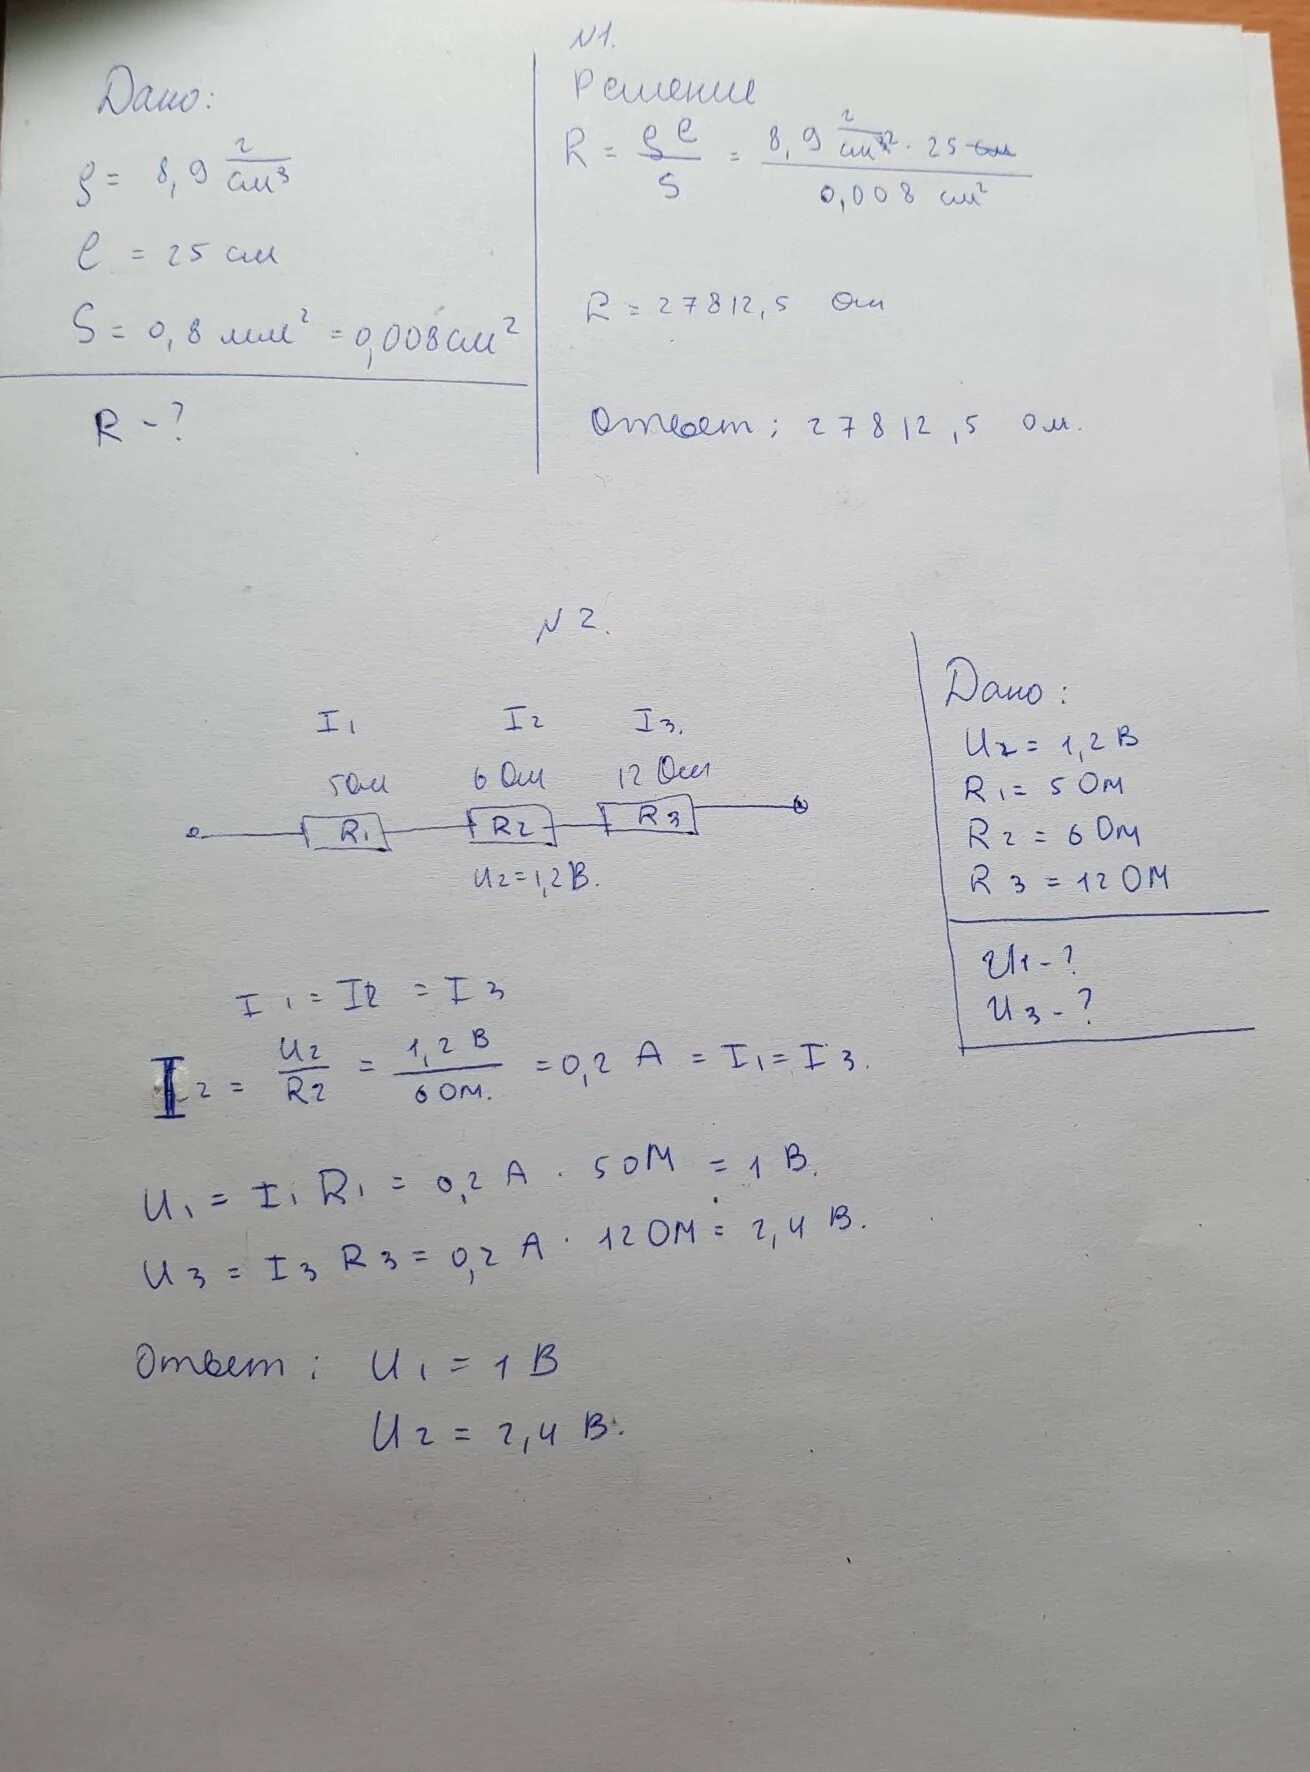 N1.
Дано:
ρ = 8,9 г/см³
l = 25 см
S = 0,8 мм² = 0,008 см²
R - ?
Решение
R = ρl/S = 8,9 г/см² · 25 см / 0,008 см²
R = 27812,5 Ом
Ответ: 27812,5 ом.
N 2.
I₁ I₂ I₃.
5Ом 6 Ом 12 Ом
R₁ R₂ R₃
U₂=1,2В.
Дано:
U₂ = 1,2 В
R₁ = 5 Ом
R₂ = 6 Ом
R₃ = 12 ОМ
U₁ - ?
U₃ - ?
I₁ = I₂ = I₃
I₂ = U₂/R₂ = 1,2 В/6 Ом. = 0,2 А = I₁ = I₃.
U₁ = I₁ R₁ = 0,2 А · 5 ОМ = 1 В.
U₃ = I₃ R₃ = 0,2 А · 12 ОМ = 2,4 В.
Ответ: U₁ = 1 В
U₂ = 2,4 В.